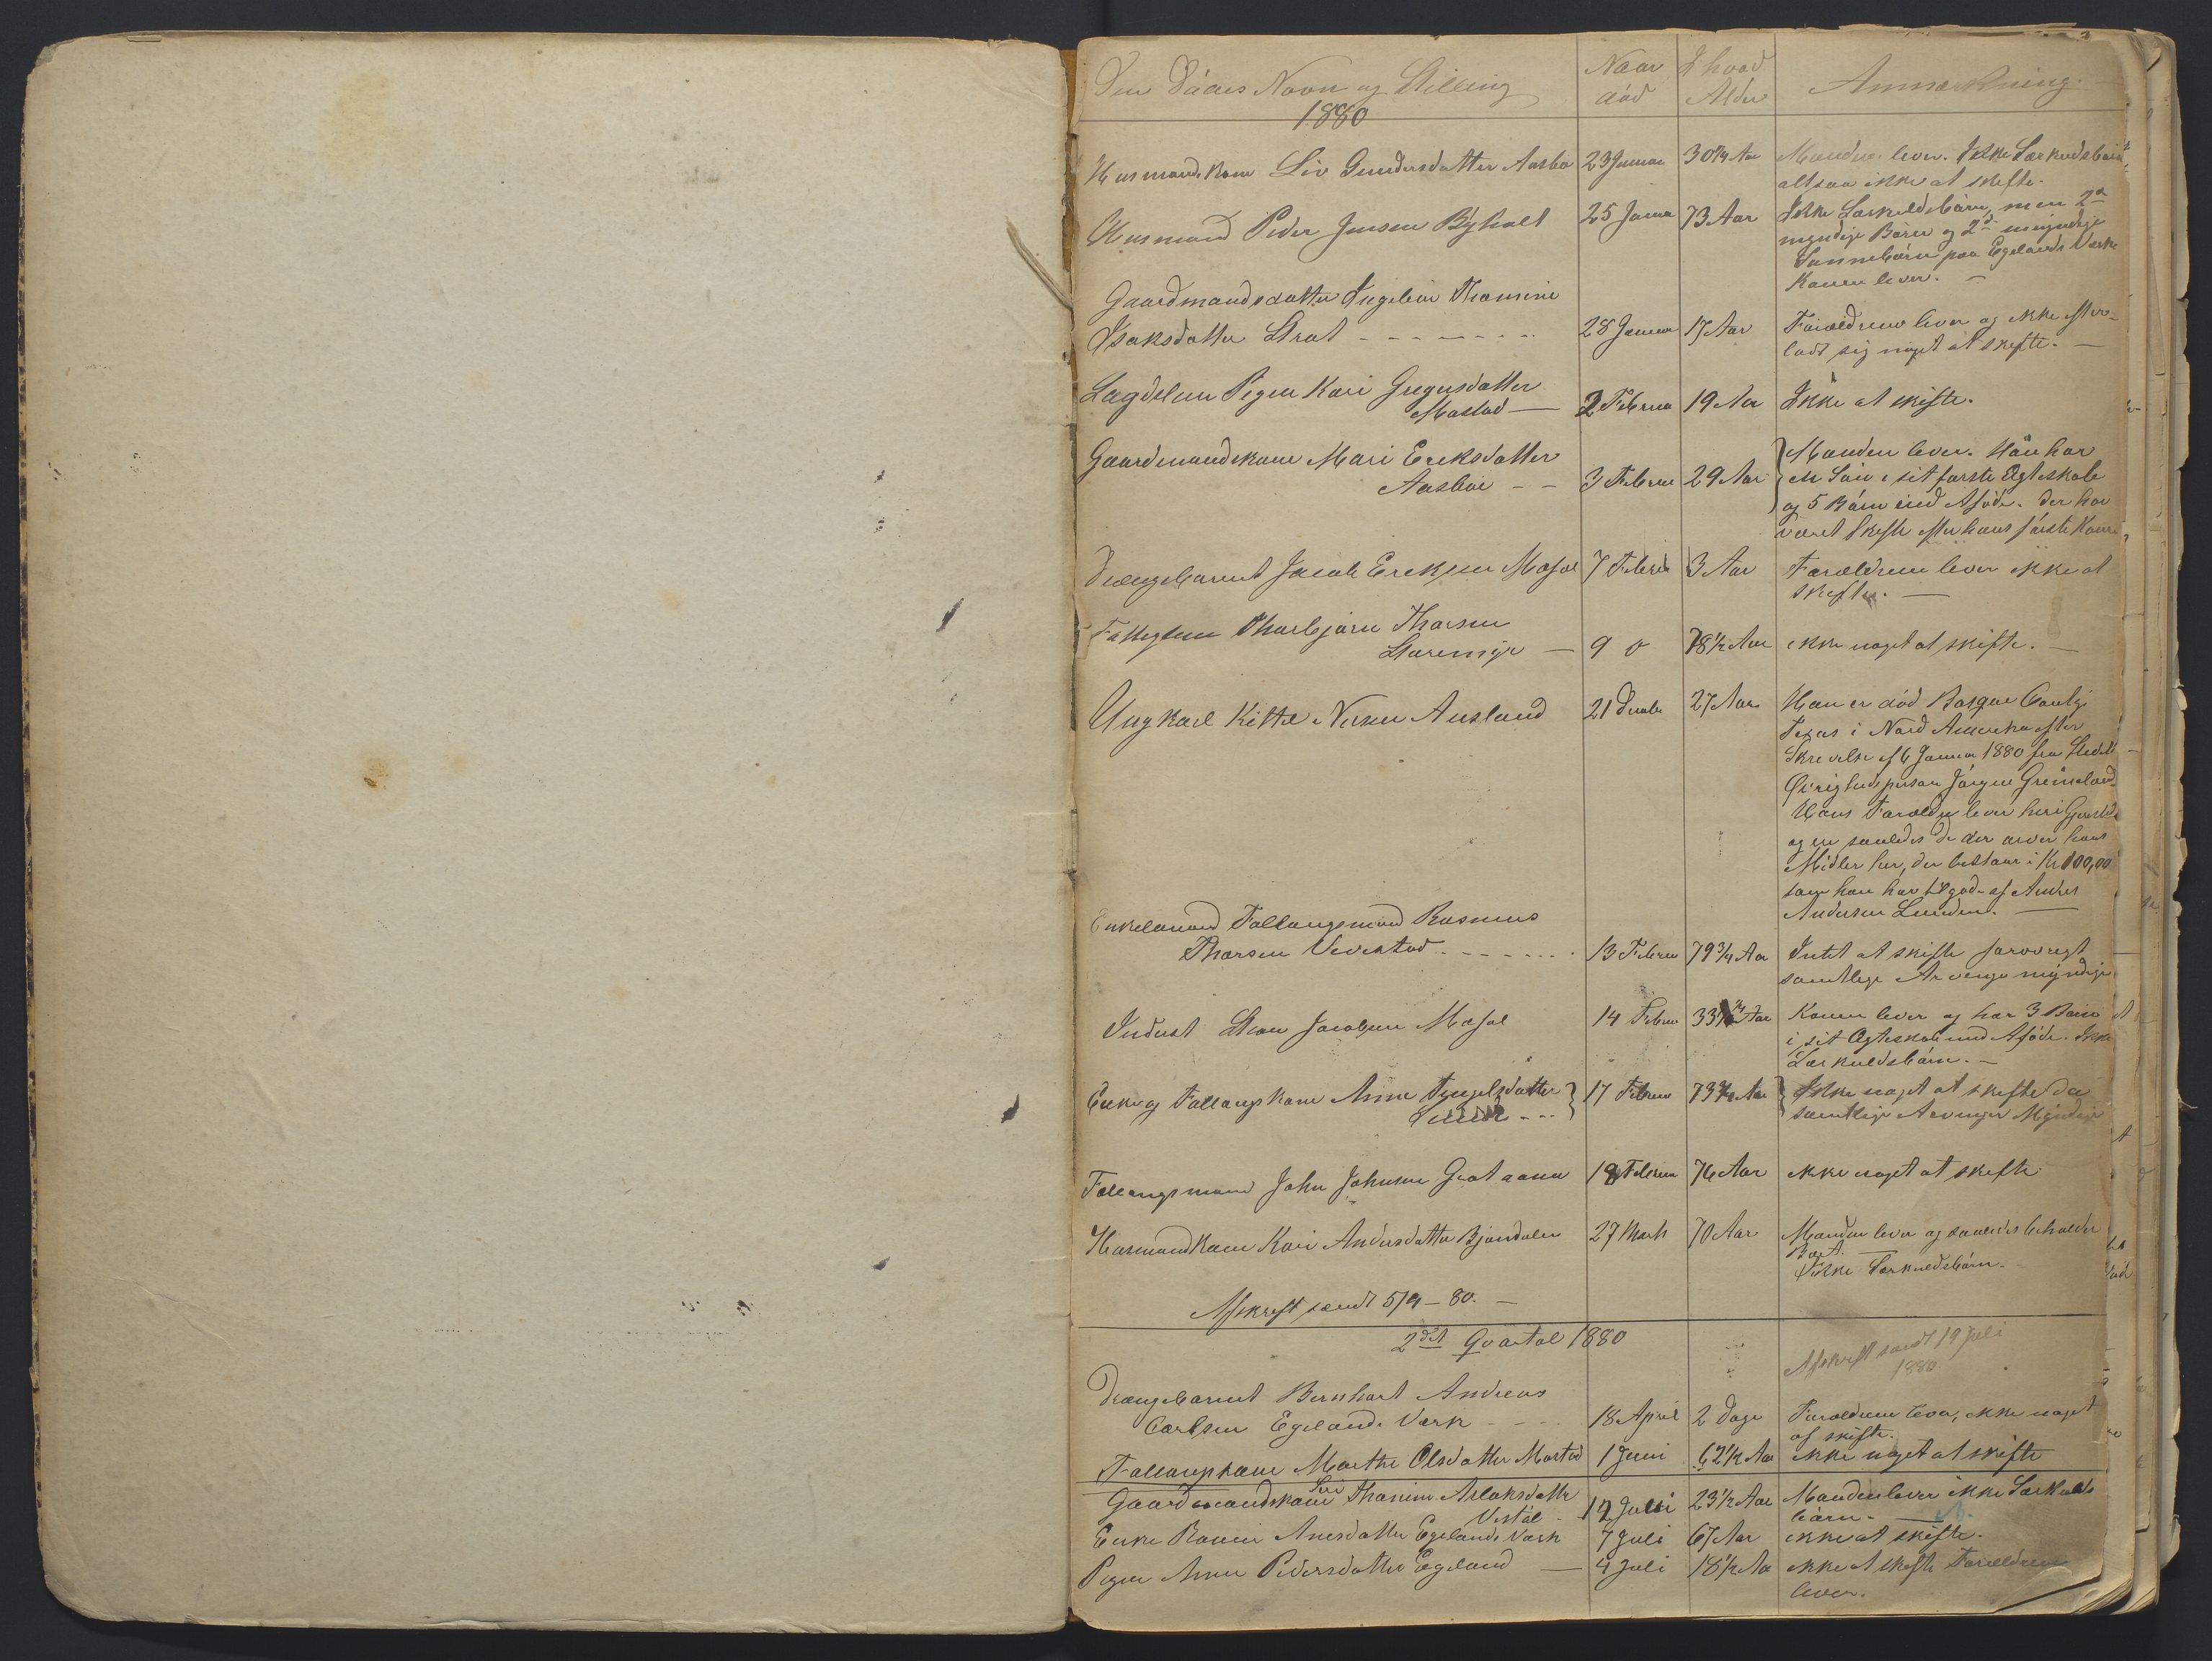 Den Dödes Navn og Stilling
Naar död
I hvad Alder
Anmærkning.
1880
Husmandskone Liv Gundersdatter Aasbø 23 Januar 30 3/4 Aar Manden lever. Ikke Særkuldsbørn
altsaa ikke at skifte.
Husmand Peder Jensen Byholt 25 Januar 73 Aar Ikke Særkuldsbörn, men 2de
myndige Börn og 2de umyndige
Sönnebörn paa Egelands Værk
Konen lever. —
Gaardmandsdatter Ingebor Thomine
Isaksdatter Strat - - - - - - - 28 Januar 17 Aar Forældrene lever og ikke efter-
ladt sig noget at skifte. —
Lægdslem Pigen Kari Gregersdatter
Mostad — 2 Februar 19 Aar Ikke at skifte.
Gaardmandskone Mari Ereksdatter
Aasbøe - - 3 Februar 29 Aar Manden lever. Han har
en Sön i sit første Ægteskab
og 5 Börn med Aføde. Der har
været skifte efter hans förste Kone
Drængebarnet Jacob Ereksen Mosjoe 7 Februar 3 Aar Forældrene lever ikke at
skifte. —
Fattiglem Thorbjörn Thorsen
Staremyr — 9 78 1/2 Aar ikke noget at skifte. —
Ungkarl Kittel Nersen Ausland 21 27 Aar Han er död Bosque County
Texas i Nord Amerika efter
Skrivelse af 6 Januar 1880 fra
Övrighedsperson Jörgen Grimeland
Hans Forældre lever her i Gjerstad
og er saaledes de der arver hans
Midler her, der bestaar i Kr 100,00
som han har tilgod af Anders
Andersen Lunden. —
Enkemand Föllaugsmand Rasmus
Thorsen Vevestad - - - - - - - 13 Februar 79 3/4 Aar Intet at skifte forövrigt
samtlige Arvinger myndige
Inderst Jacobsen Mosjoe 14 Februar 33 Aar Konen lever og har 3 Börn
i sit Ægteskab med Aföde. Ikke
Særkuldsbörn. —
Enke og Föllaugskone Anne Tengelsdatter
- - - 17 Februar 73 3/4 Aar Ikke noget at skifte da
samtlige Arvinger Myndige
Föllaugsmand John Johnsen 18 Februar 76 Aar ikke noget at skifte
Husmandkone Kari Andersdatter Bjondalen 27 Marts 70 Aar Manden lever og saaledes beholder
Boet. —
Ikke Særkuldsbörn.
Afskrift sendt 5/4 – 80. —
2det Qvartal 1880
Afskrift sendt 19 Juli
1880.
Drængebarnet Bernhart Andreas
Carlsen Egelands Værk - - - 18 April 2 Dage Forældrene lever, ikke noget
at skifte.
Föllaugskone Marthe Olsdatter Mostad 1 Juni 62 1/2 Aar ikke noget at skifte
Gaardmandskone Siri Thomine Aslaksdatter
Vestöl - 12 Juli 23 1/2 Aar Manden lever ikke Særkulds
börn. —
Enke Anesdatter Egelands Værk 7 Juli 67 Aar ikke at skifte.
Pigen Anne Pedersdatter Egeland — 4 Juli 18 1/2 Aar ikke at skifte Forældrene
lever.